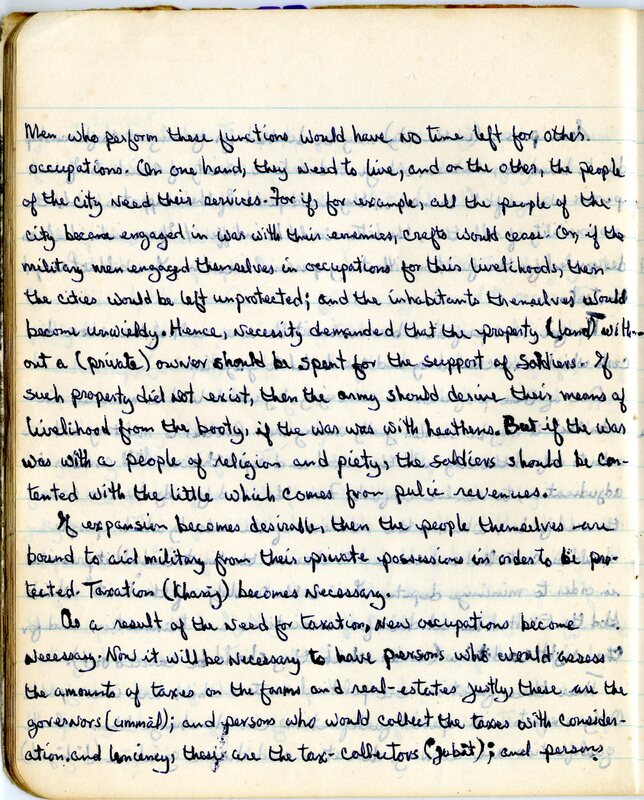 Men who perform these functions would have no time left for, other
occupations. On one hand, they need to live, and on the other, the people
of the city need their services. For if, for example, all the people of the
city become engaged in war with their enemies, crafts would cease. Or, if the
military men engaged themselves in occupations for their livelihoods, then
the cities would be left unprotected; and the inhabitants themselves would
become unwieldy. Hence, necessity demanded that the property (land) with-
out a (private) owner should be spent for the support of soldiers. If
such property did not exist, then the army should derive their means of
livelihood from the booty, if the war was with heathens. But if the war
was with a people of religion and piety, the soldiers should be con-
tented with the little which comes from pulic revenues.
If expansion becomes desirable, then the people themselves are
bound to aid military from their private possessions in order to be pro-
tected. Taxation (Kharāj) becomes necessary.
As a result of the need for taxation, new occupations become
necessary. Now it will be necessary to have persons who would assess
the amounts of taxes on the farms and real-estates justly, these are the
governors (ummāl); and persons who would collect the taxes with consider-
ation and leniency, these are the tax-collectors (jubāt); and persons